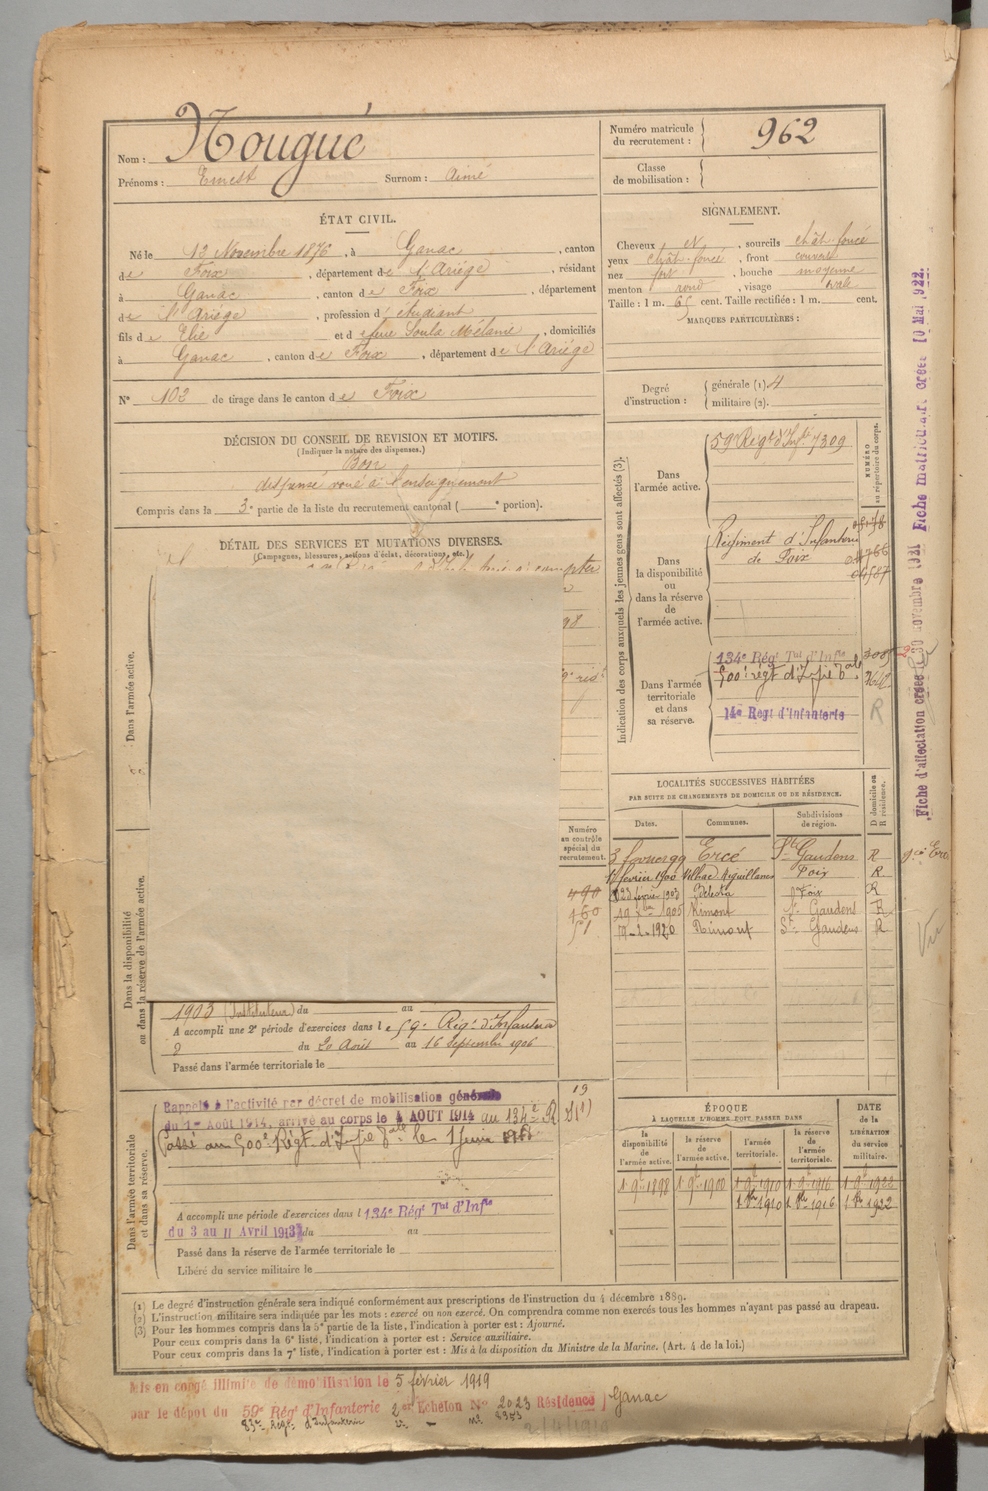 Nom : Nougué
Prénoms : Ernest Surnom : Aimé
Numéro matricule du recrutement : 962
Classe de mobilisation :
ÉTAT CIVIL.
Né le 12 Novembre 1876, à Ganac, canton
de Foix, département de l'Ariège, résidant
à Ganac, canton de Foix, département
de l'Ariège, profession d'étudiant
fils de Elie et de feue Soula Mélanie, domiciliés
à Ganac, canton de Foix, département de l'Ariège
N° 102 de tirage dans le canton de Foix
SIGNALEMENT.
Cheveux N, sourcils chât. foncé
yeux chât. foncé, front couvert
nez fort, bouche moyenne
menton rond, visage ovale
Taille : 1 m. 65 cent. Taille rectifiée : 1 m. cent.
MARQUES PARTICULIÈRES :
Degré d'instruction : générale (1) 4
militaire (2).
DÉCISION DU CONSEIL DE REVISION ET MOTIFS.
(Indiquer la nature des dispenses.)
Bon
dispensé voué à l'enseignement
Compris dans la 3e partie de la liste du recrutement cantonal ( e portion).
DÉTAIL DES SERVICES ET MUTATIONS DIVERSES.
(Campagnes, blessures, actions d'éclat, décorations, etc.)
à compter
98
Dans l'armée active.
Dans la disponibilité ou dans la réserve de l'armée active.
Numéro au contrôle spécial du recrutement.
490
160
51
1903 (Instituteur) du au
A accompli une 2e période d'exercices dans le 59e Rég. d'Infanterie
du 20 Août au 16 Septembre 1906
Passé dans l'armée territoriale le
Dans l'armée territoriale et dans sa réserve.
Rappelé à l'activité par décret de mobilisation générale
du 1er Août 1914, arrivé au corps le 4 AOUT 1914 au 134e R
Passé au 500e Régt d'Infie Tale le 1 Juin
A accompli une période d'exercices dans l 134e Régt Tal d'Infie
du 3 au 11 Avril 1913 du au
Passé dans la réserve de l'armée territoriale le
Libéré du service militaire le
Indication des corps auxquels les jeunes gens sont affectés (3).
NUMÉRO au répertoire du corps.
Dans l'armée active.
59e Régt d'Infie 7309
Dans la disponibilité ou dans la réserve de l'armée active.
Régiment d'Infanterie
de Foix
Dans l'armée territoriale et dans sa réserve.
134e Régt Tal d'Infie
500e régt d'Infie Tale
14e Régt d'Infanterie
R
LOCALITÉS SUCCESSIVES HABITÉES
PAR SUITE DE CHANGEMENTS DE DOMICILE OU DE RÉSIDENCE.
Dates. Communes. Subdivisions de région. D domicile ou R résidence.
3 février 99 Ercé St Gaudens R
février 1900 Foix R
23 février 1903 Bélesta Foix R
19 1905 Rimont St Gaudens R
19-2-1920 Rimont St Gaudens R
ÉPOQUE
À LAQUELLE L'HOMME DOIT PASSER DANS
la disponibilité de l'armée active. la réserve de l'armée active. l'armée territoriale. la réserve de l'armée territoriale. DATE de la LIBÉRATION du service militaire.
1 9bre 1898 1 9bre 1900 1 9bre 1910 1 9bre 1916 1 9bre 1922
1 8bre 1910 1 8bre 1916 1 8bre 1922
Fiche d'affectation créée le 30 novembre 1921 Fiche matriculaire créée 10 Mai 1922.
(1) Le degré d'instruction générale sera indiqué conformément aux prescriptions de l'instruction du 4 décembre 1889.
(2) L'instruction militaire sera indiquée par les mots : exercé ou non exercé. On comprendra comme non exercés tous les hommes n'ayant pas passé au drapeau.
(3) Pour les hommes compris dans la 5e partie de la liste, l'indication à porter est : Ajourné.
Pour ceux compris dans la 6e liste, l'indication à porter est : Service auxiliaire.
Pour ceux compris dans la 7e liste, l'indication à porter est : Mis à la disposition du Ministre de la Marine. (Art. 4 de la loi.)
Mis en congé illimité de démobilisation le 5 février 1919
par le dépot du 59e Rég d'Infanterie 2e Echelon No 2023 Résidence Ganac
83e Régt d'Infanterie